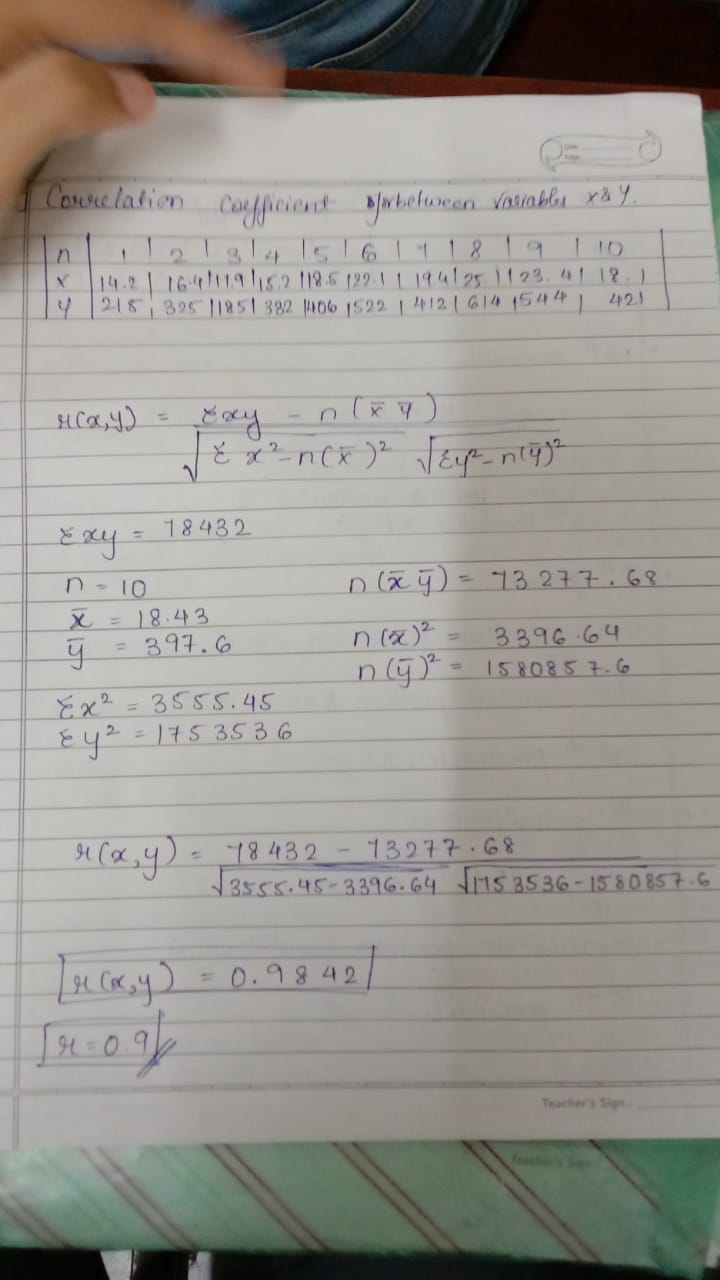 Correlation Coefficient between variables x & y.
n | 1 | 2 | 3 | 4 | 5 | 6 | 7 | 8 | 9 | 10
x | 14.2 | 16.4 | 11.9 | 15.2 | 18.5 | 22.1 | 19.4 | 25.1 | 23.4 | 18.1
y | 215 | 325 | 185 | 332 | 406 | 522 | 412 | 614 | 544 | 421
r(x,y) = Σxy - n(x̄ ȳ)
√Σx²-n(x̄)² √Σy²-n(ȳ)²
Σxy = 78432
n = 10 n(x̄ ȳ) = 73277.68
x̄ = 18.43
ȳ = 397.6 n(x̄)² = 3396.64
n(ȳ)² = 1580857.6
Σx² = 3555.45
Σy² = 1753536
r(x,y) = 78432 - 73277.68
√3555.45-3396.64 √1753536-1580857.6
r(x,y) = 0.9842
r = 0.9
Teacher's Sign.
Teacher's Sign